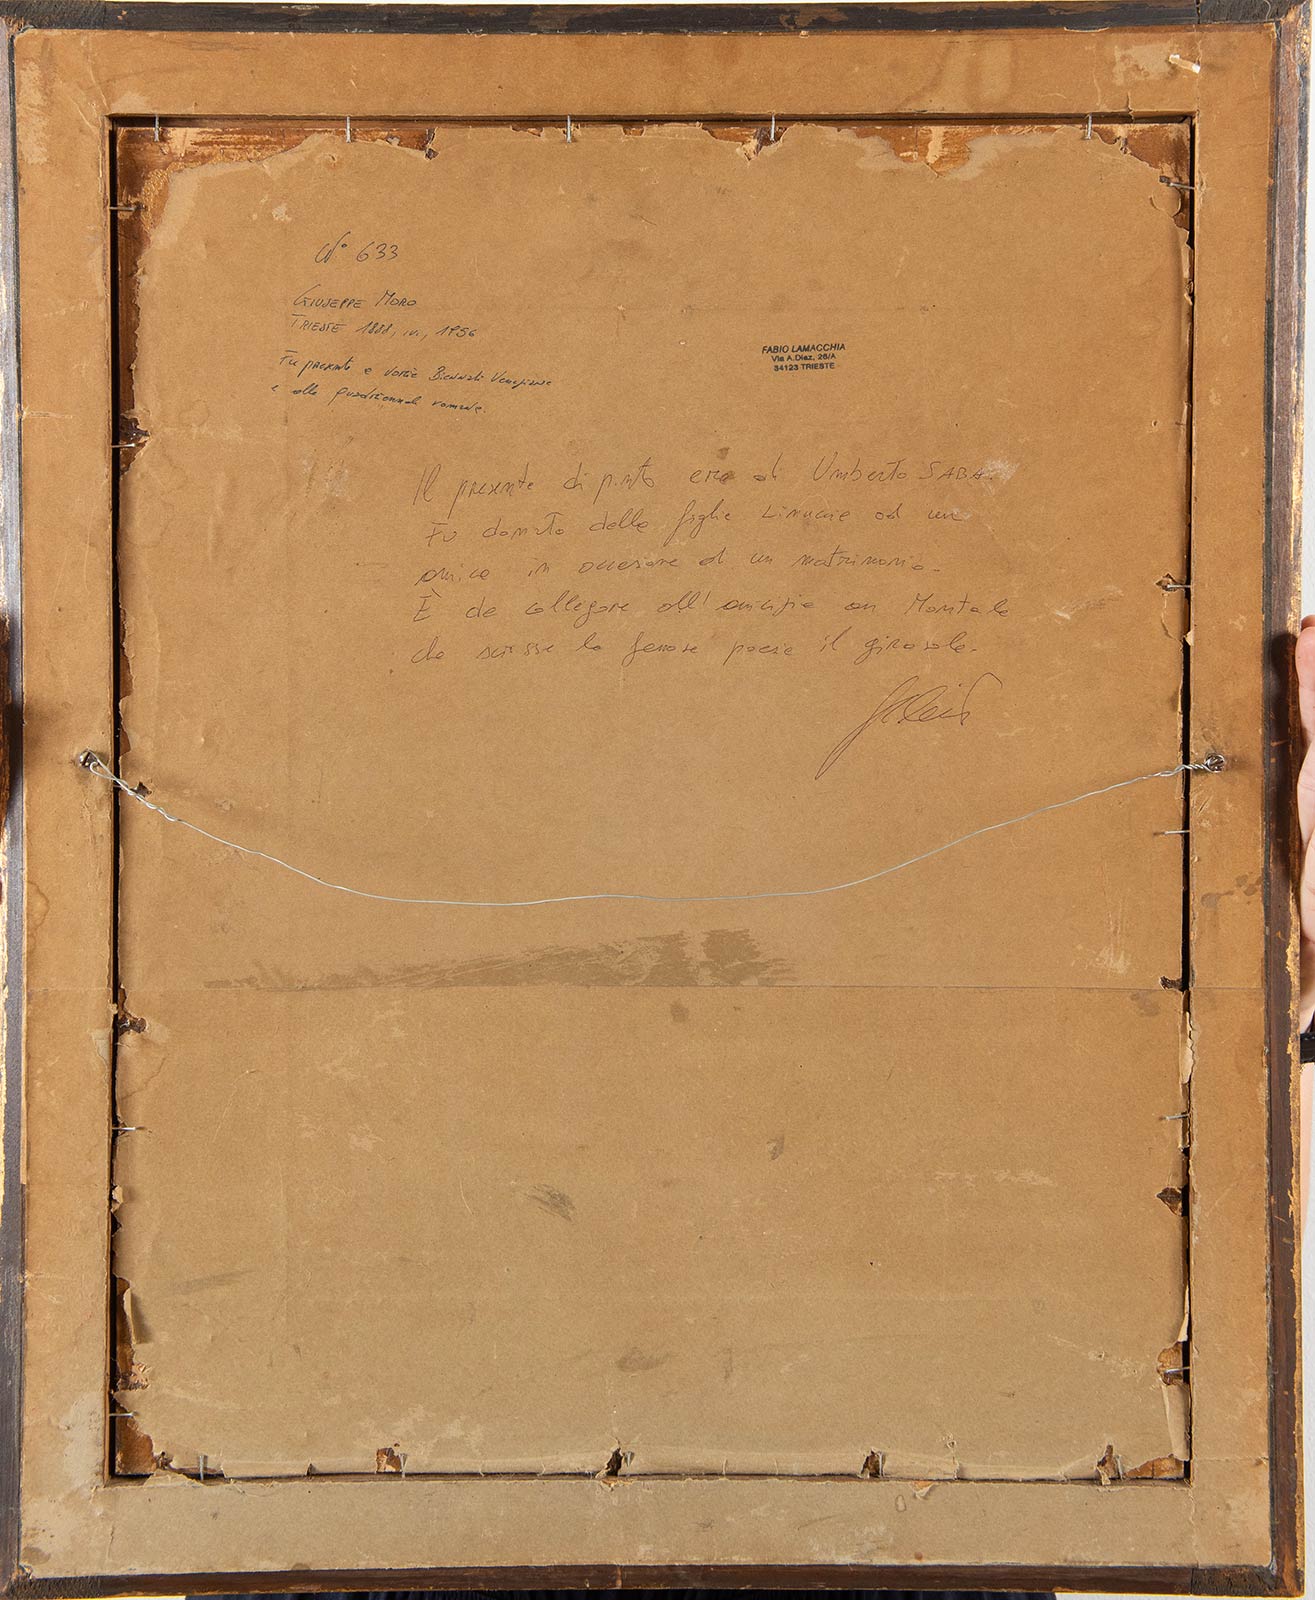 N° 633
GIUSEPPE MORO
TRIESTE 1888, ivi, 1956
Fu presente a varie Biennali Veneziane
e alla quadriennale romana.
FABIO LAMACCHIA
Via A.Diaz, 26/A
34123 TRIESTE
Il presente dipinto era di Umberto SABA.
Fu donato dalla figlia Linuccia ad un
amico in occasione di un matrimonio.
È da collegare all'amicizia con Montale
che scrisse la famosa poesia il girasole.